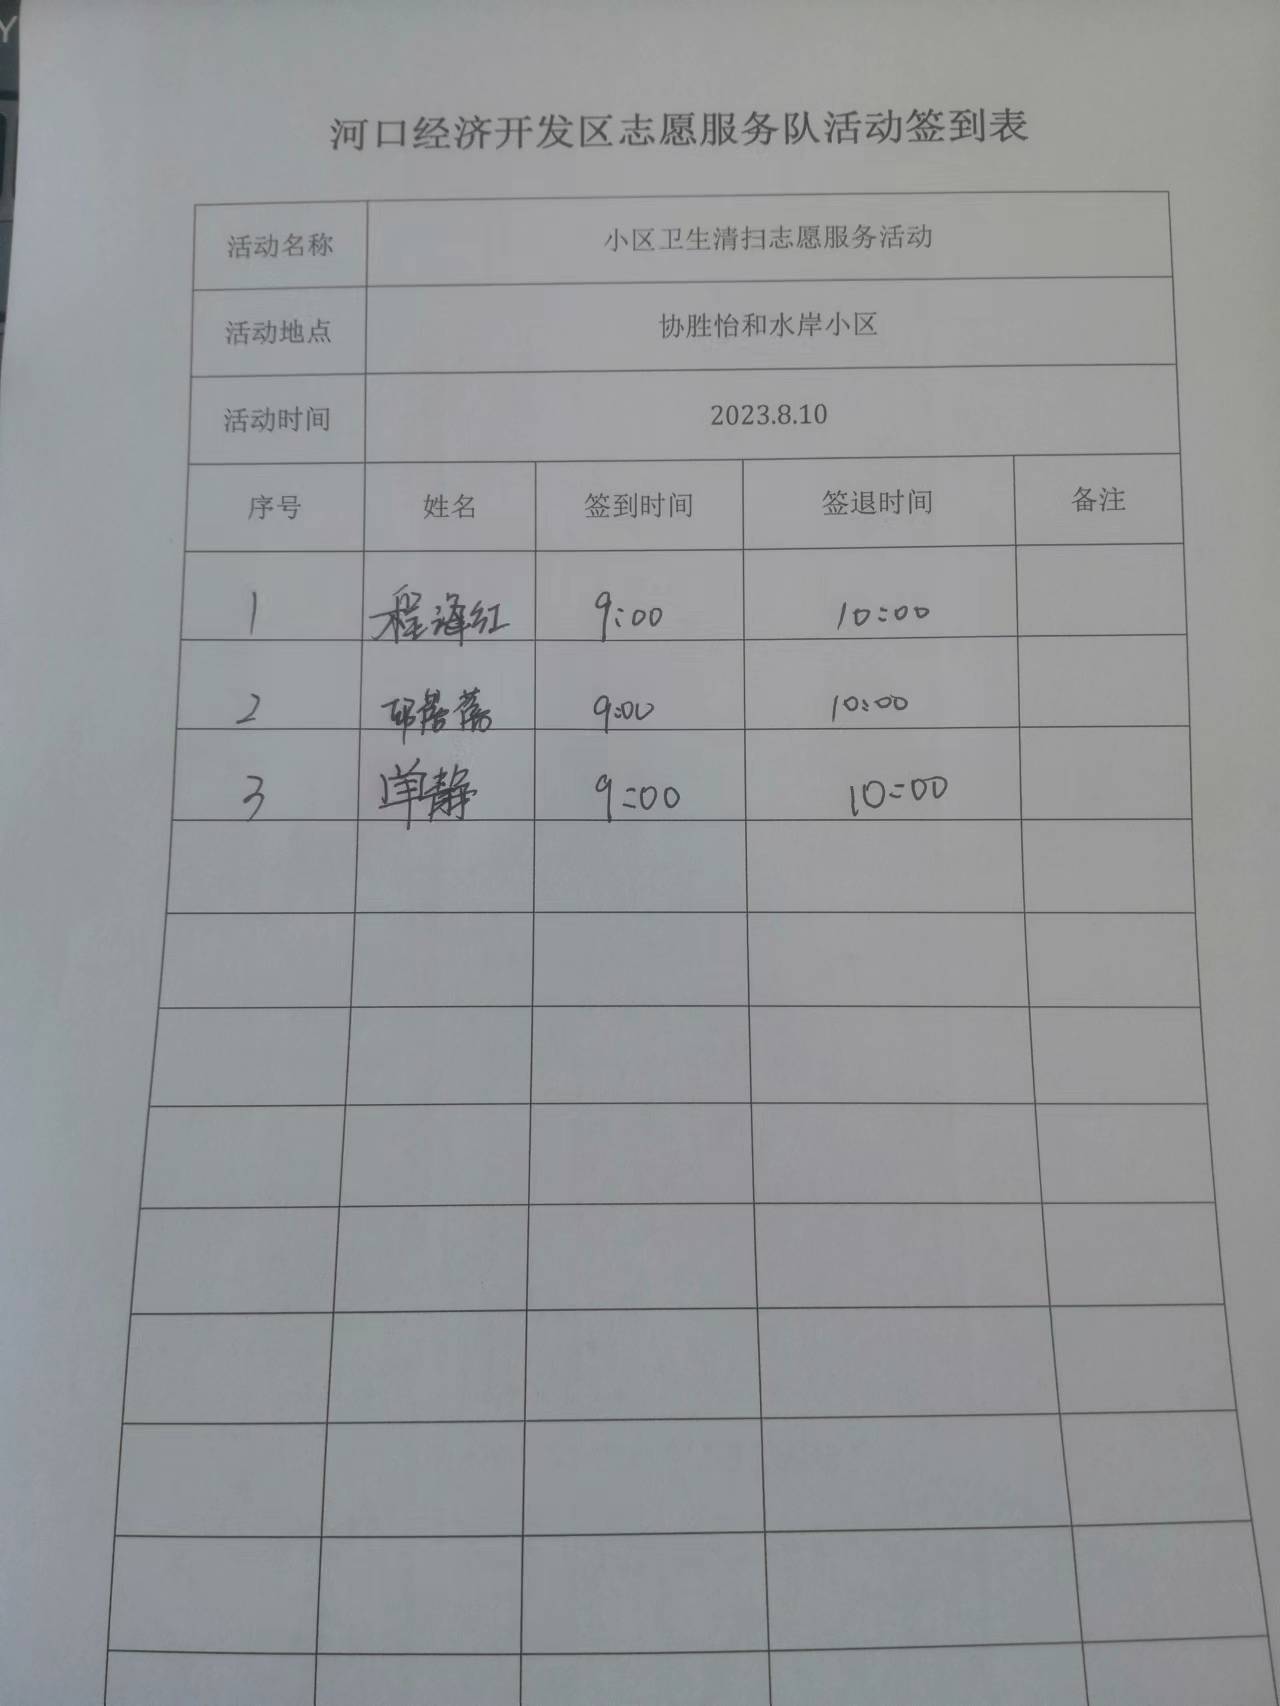 河口经济开发区志愿服务队活动签到表
活动名称 小区卫生清扫志愿服务活动
活动地点 协胜怡和水岸小区
活动时间 2023.8.10
序号 姓名 签到时间 签退时间 备注
1 程泽红 9:00 10:00
2 9:00 10:00
3 单静 9:00 10:00